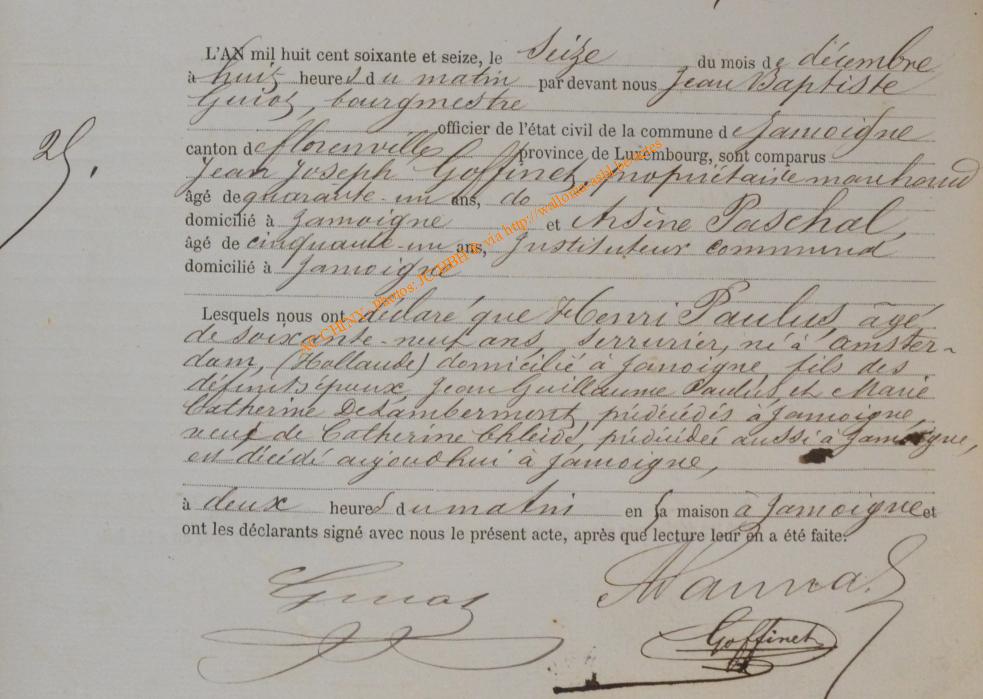 L'AN mil huit cent soixante et seize, le Seize du mois de décembre
à huit heures du matin par devant nous Jean Baptiste
Guiot, bourgmestre
officier de l'état civil de la commune de Jamoigne
canton de florenville province de Luxembourg, sont comparus
Jean Joseph Goffinet, propriétaire marchand
âgé de quarante-un ans,
domicilié à Jamoigne et Arsène Paschal,
âgé de cinquante-un ans, Instituteur communal
domicilié à Jamoigne
25.
Lesquels nous ont déclaré que Henri Paulus, âgé
de soixante-neuf ans, serrurier, né à amster-
dam, (Hollande) domicilié à Jamoigne, fils des
défunts époux, Jean Guillaume Paulus, et Marie
Catherine Delambermont, prédécédés à Jamoigne,
veuf de Catherine prédécédée aussi à Jamoigne,
est décédé aujourdhui à Jamoigne,
à deux heures du matin en sa maison à Jamoigne et
ont les déclarants signé avec nous le présent acte, après que lecture leur en a été faite.
Guiot
Goffinet
via http://wallonia-asbl.be/actes